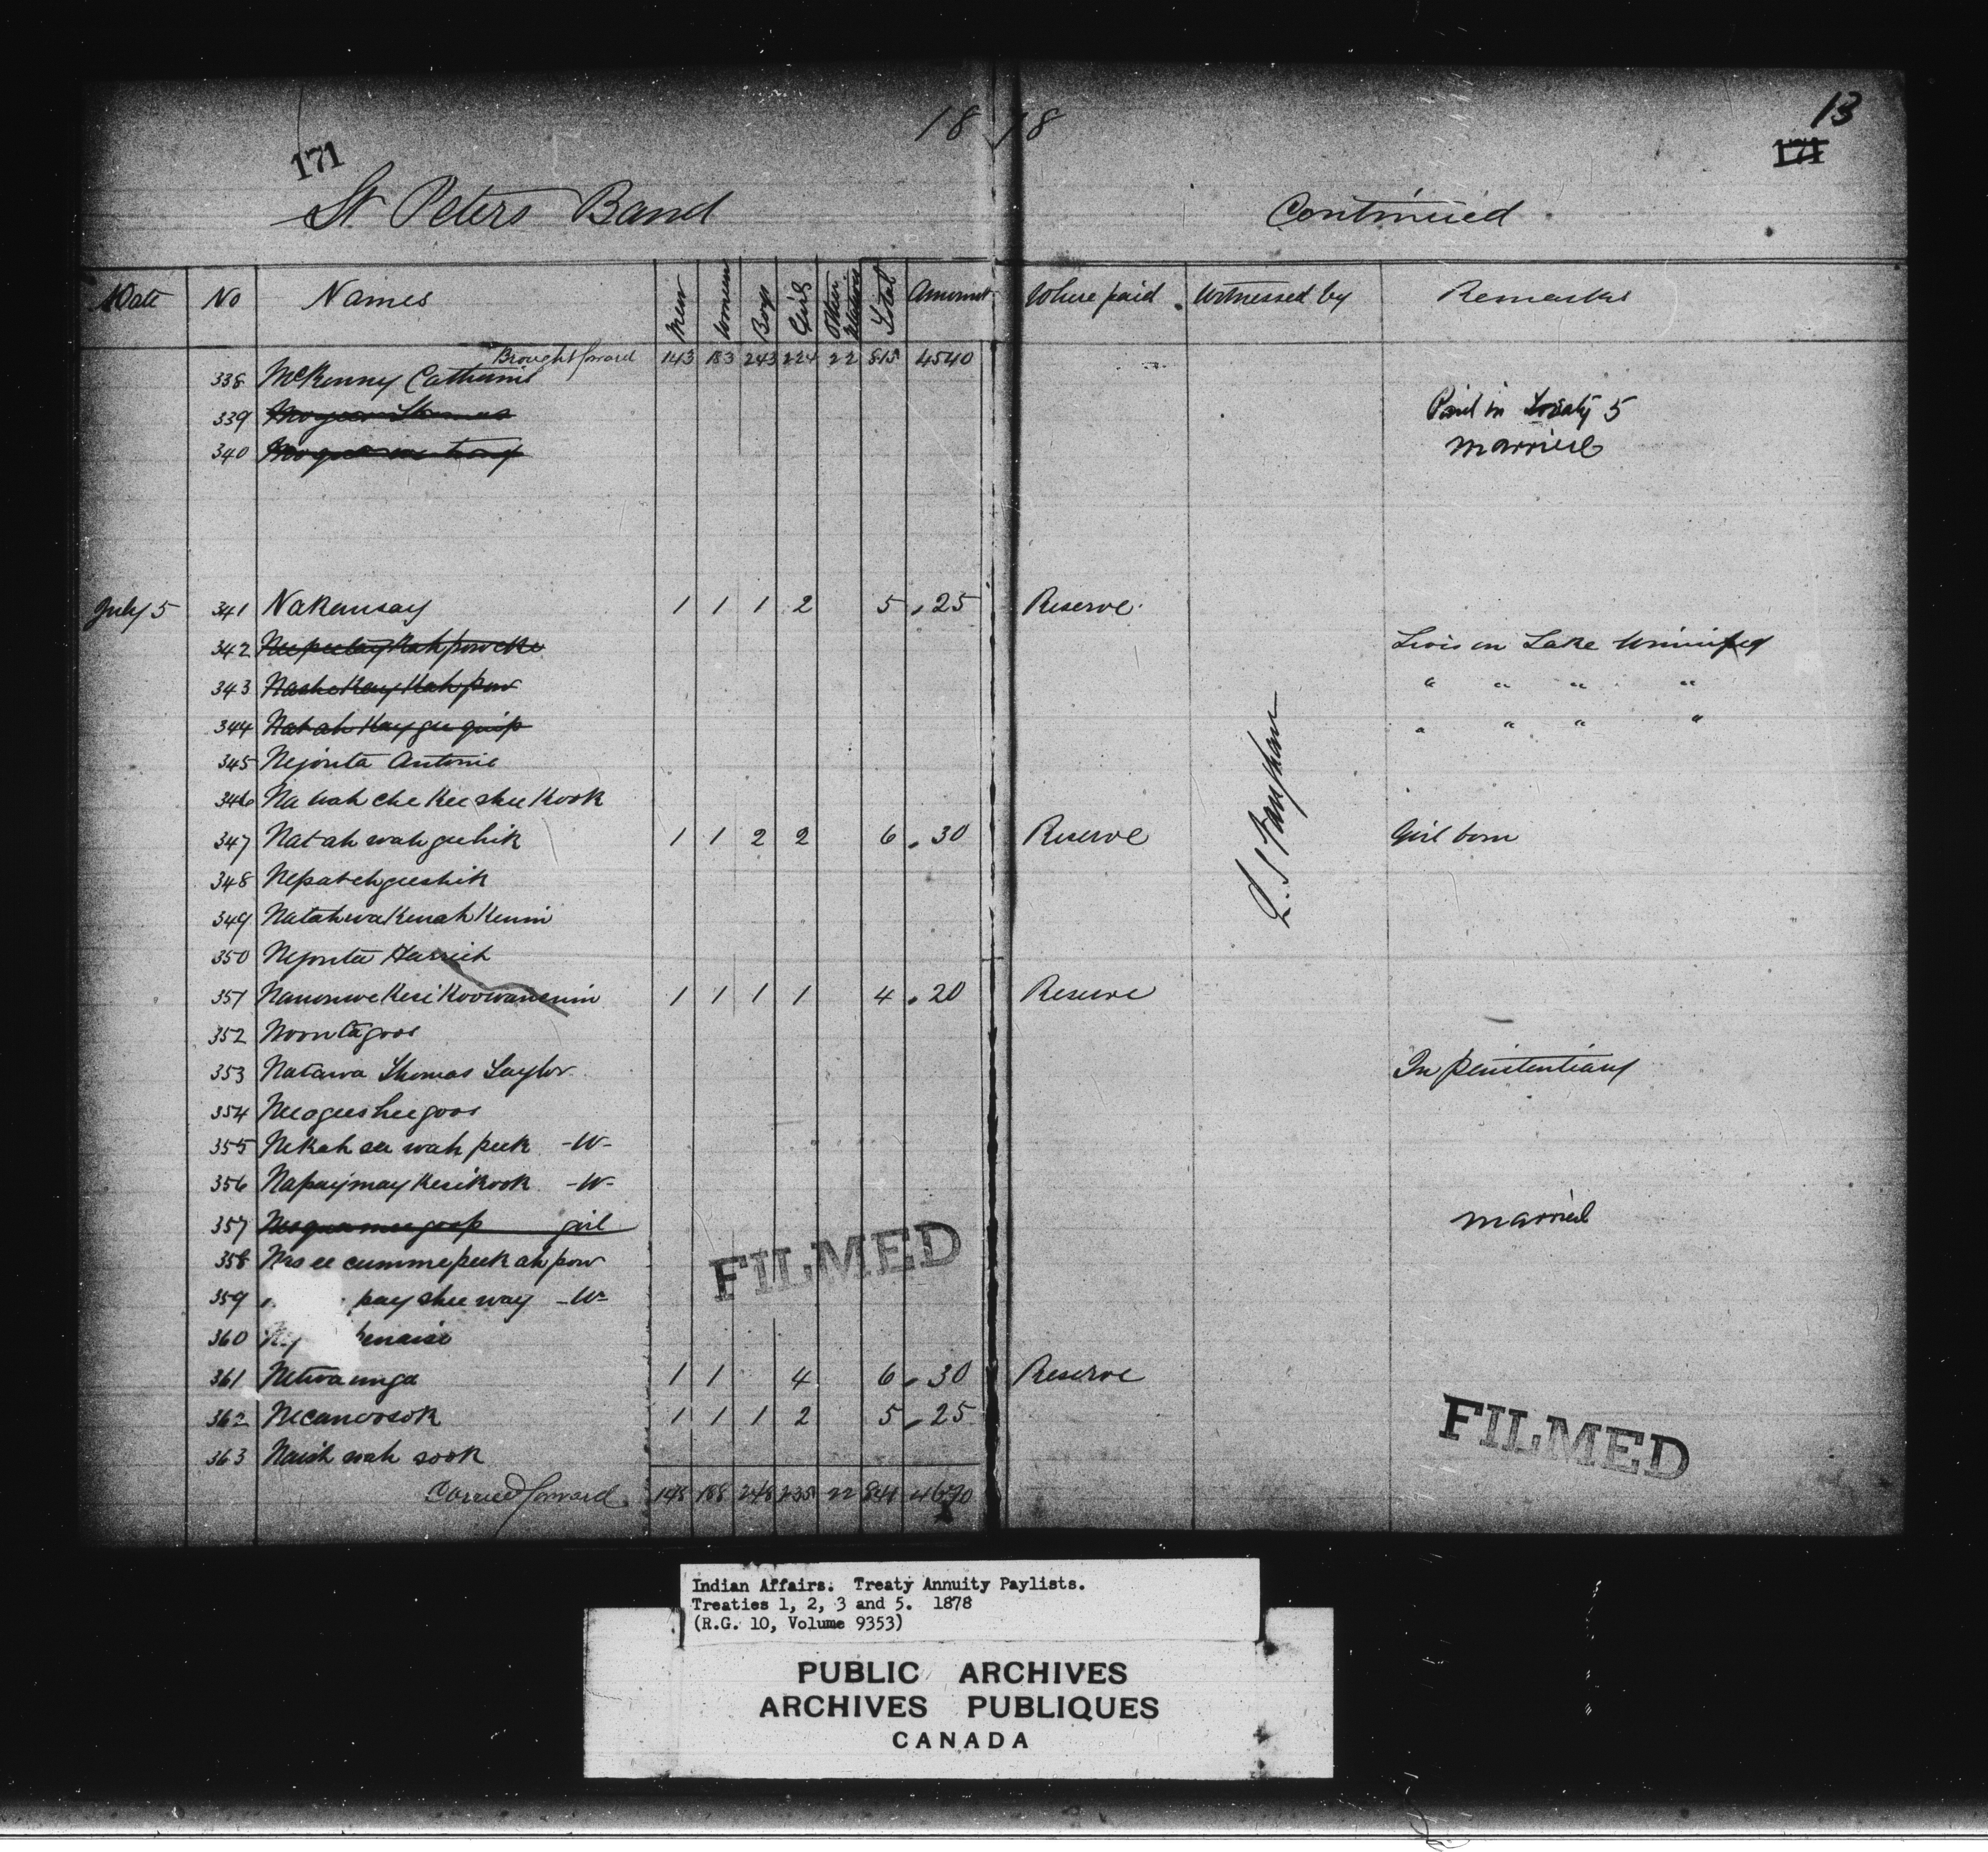 18 78 13
171 171
St Peters Band Continued
Date No Names Men Women Boys Girls Other Relatives Total Amount Where paid Witnessed by Remarks
Brought forward 143 183 243 224 22 815 4540
338 McKenny Catherine
339 Thomas Paid in Treaty 5
340 married
July 5 341 Nakensay 1 1 1 2 5 . 25 Reserve
342 Lives on Lake Winnipeg
343 Nashekaykahpow " " " "
344 Natahkaygeequip " " " "
345 Nejouta Antoine
346 Na wah che kee shee kook
347 Natah wah geehik 1 1 2 2 6 . 30 Reserve Girl born
348 Nepatchgeeshik
349 Natahwakenahkenin
350 Nejouta
351 1 1 1 1 4 . 20 Reserve
352
353 Natawa Thomas Taylor In Penitentiary
354 Neogeesheegoos
355 Nekah see wah peek -W-
356 Napaymaykesikook -W-
357 girl married
358 cummepeekahpow
359 pay shee way -W-
360
361 1 1 4 6 . 30 Reserve
362 Necanoosok 1 1 1 2 5 . 25
363 Naish wah sook
Carried forward 148 188 248 235 22 841 4670
L. S. Vaughan
FILMED
FILMED
Indian Affairs. Treaty Annuity Paylists.
Treaties 1, 2, 3 and 5. 1878
(R.G. 10, Volume 9353)
PUBLIC ARCHIVES
ARCHIVES PUBLIQUES
CANADA